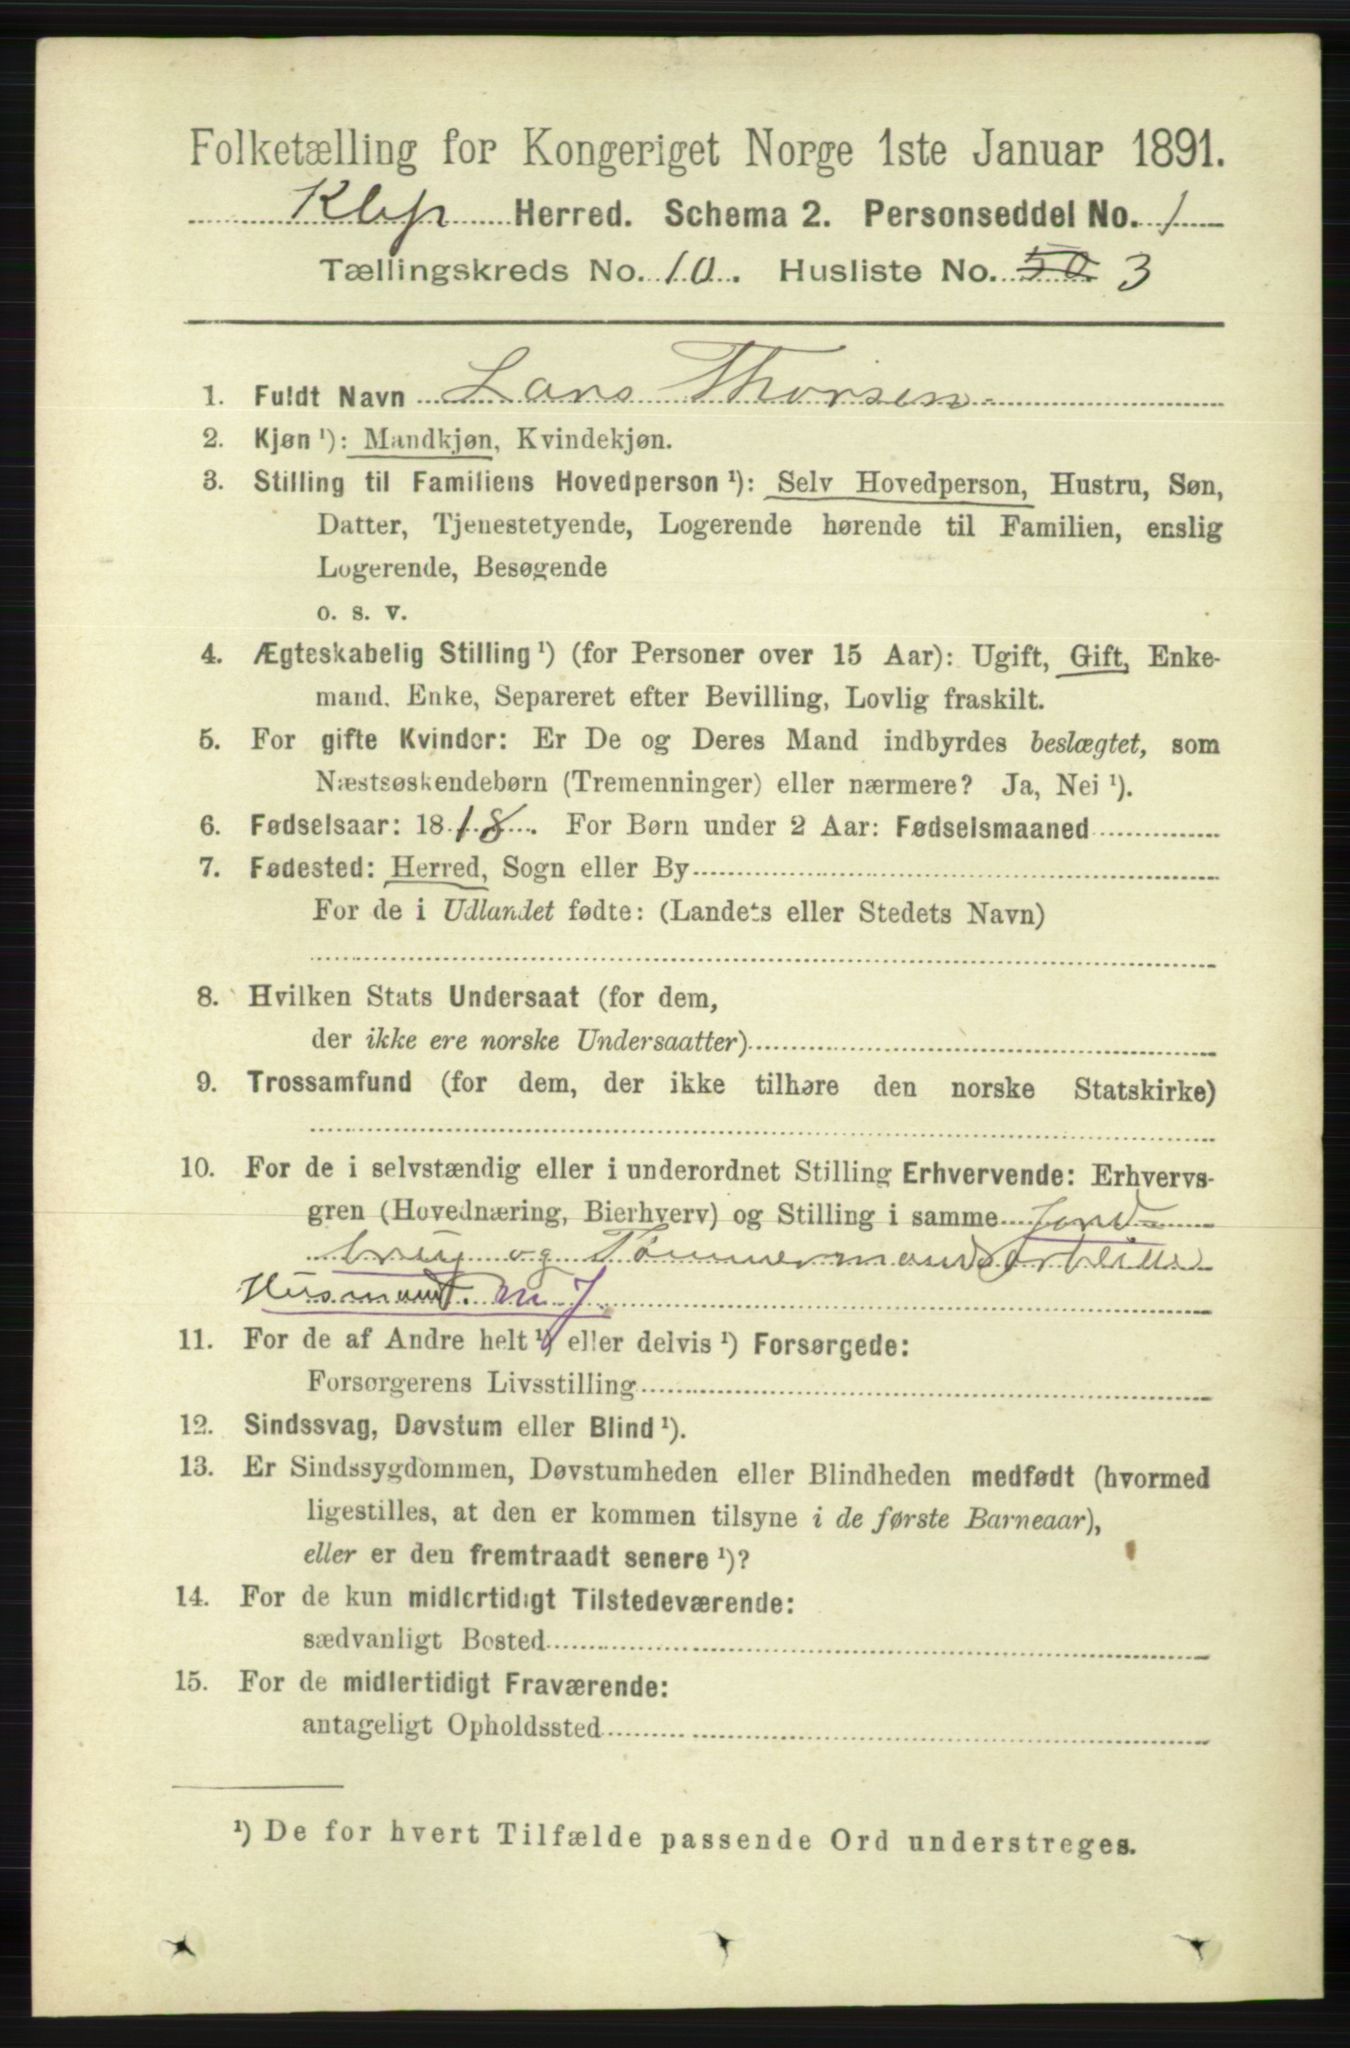 Folketælling for Kongeriget Norge 1ste Januar 1891.
Klep Herred. Schema 2. Personseddel No. 1
Tællingskreds No. 10. Husliste No. 50 3
1. Fuldt Navn Lars Thorsen
2. Kjøn ¹): Mandkjøn, Kvindekjøn.
3. Stilling til Familiens Hovedperson ¹): Selv Hovedperson, Hustru, Søn,
Datter, Tjenestetyende, Logerende hørende til Familien, enslig
Logerende, Besøgende
o. s. v.
4. Ægteskabelig Stilling ¹) (for Personer over 15 Aar): Ugift, Gift, Enke-
mand, Enke, Separeret efter Bevilling, Lovlig fraskilt.
5. For gifte Kvinder: Er De og Deres Mand indbyrdes beslægtet, som
Næstsøskendebørn (Tremenninger) eller nærmere? Ja, Nei ¹).
6. Fødselsaar: 1818. For Børn under 2 Aar: Fødselsmaaned
7. Fødested: Herred, Sogn eller By
For de i Udlandet fødte: (Landets eller Stedets Navn)
8. Hvilken Stats Undersaat (for dem,
der ikke ere norske Undersaatter)
9. Trossamfund (for dem, der ikke tilhøre den norske Statskirke)
10. For de i selvstændig eller i underordnet Stilling Erhvervende: Erhvervs-
gren (Hovednæring, Bierhverv) og Stilling i samme Jord-
brug og Tømmermandsarbeide
Husmand m J
11. For de af Andre helt ¹) eller delvis ¹) Forsørgede:
Forsørgerens Livsstilling
12. Sindssvag, Døvstum eller Blind ¹).
13. Er Sindssygdommen, Døvstumheden eller Blindheden medfødt (hvormed
ligestilles, at den er kommen tilsyne i de første Barneaar),
eller er den fremtraadt senere ¹)?
14. For de kun midlertidigt Tilstedeværende:
sædvanligt Bosted
15. For de midlertidigt Fraværende:
antageligt Opholdssted
¹) De for hvert Tilfælde passende Ord understreges.